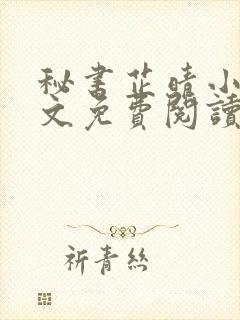 秘書芷晴小
文免費閱讀
祈青絲